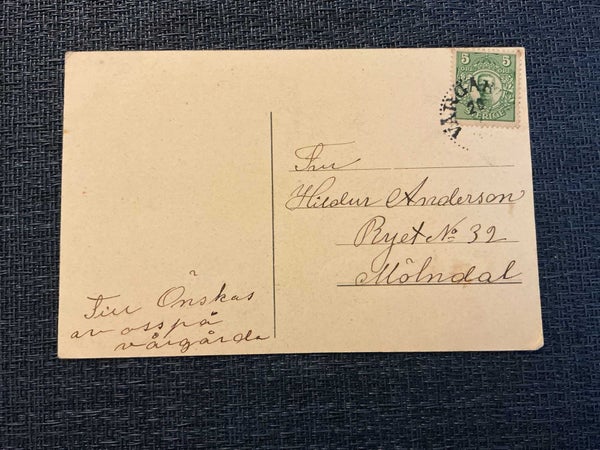 5 5
SVERIGE
VÅRGÅR
20
Fru
Hildur Anderson
Ryet No 32
Mölndal
Önskas
av oss på
vårgårda